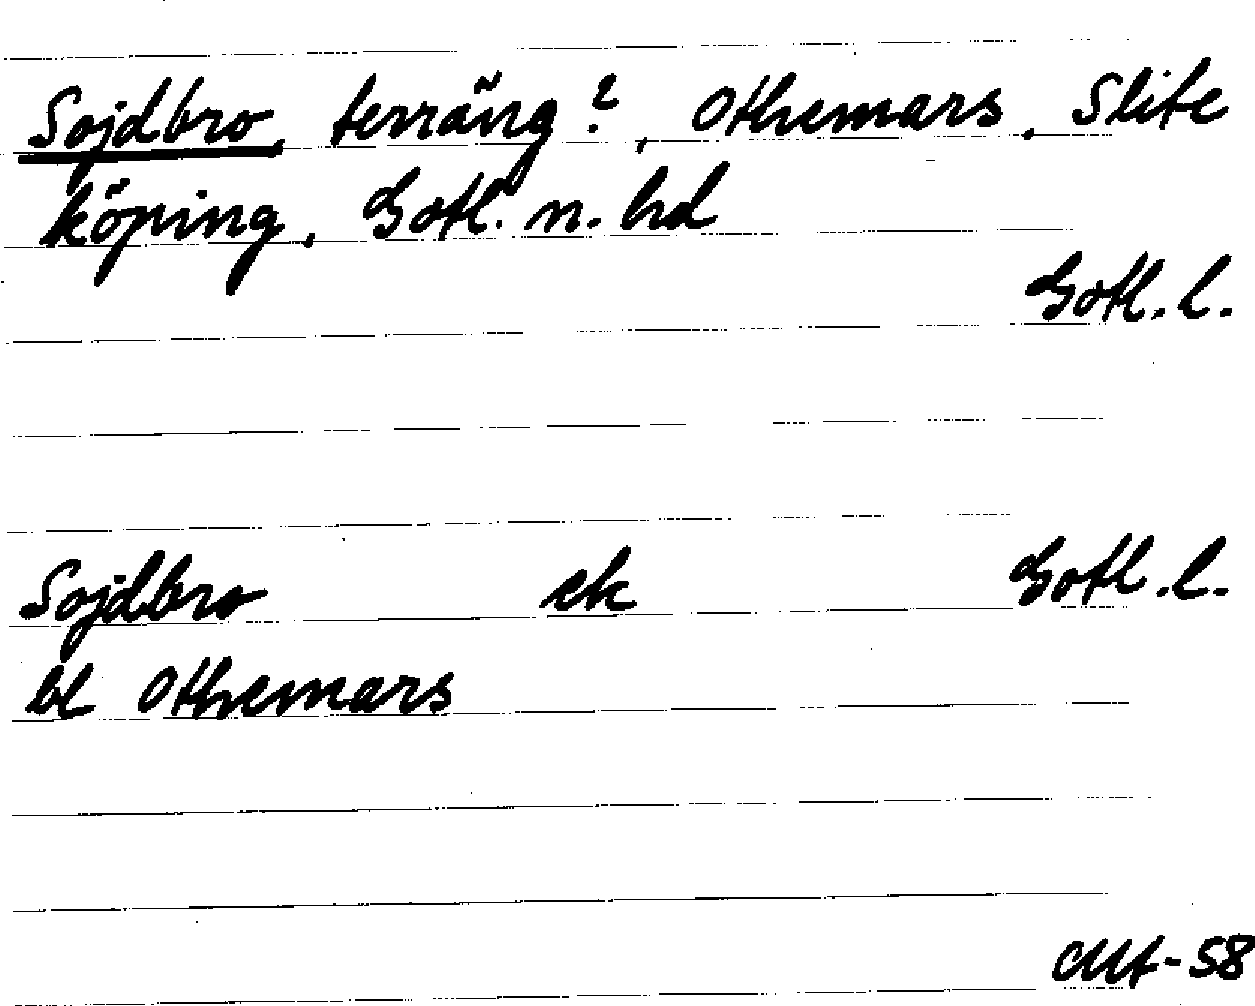 Sojdbro, terräng?, Othemars, Slite
köping, Gotl. n. hd
Gotl. l.
Sojdbro ek Gotl. l.
bl Othemars
-58